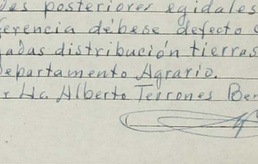 des posteriores egidales
ferencia débese defecto
adas distribución tierras
Departamento Agrario.
r Lic. Alberto Terrones Ben